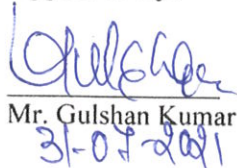 Gulshan
Mr. Gulshan Kumar
31-07-2021